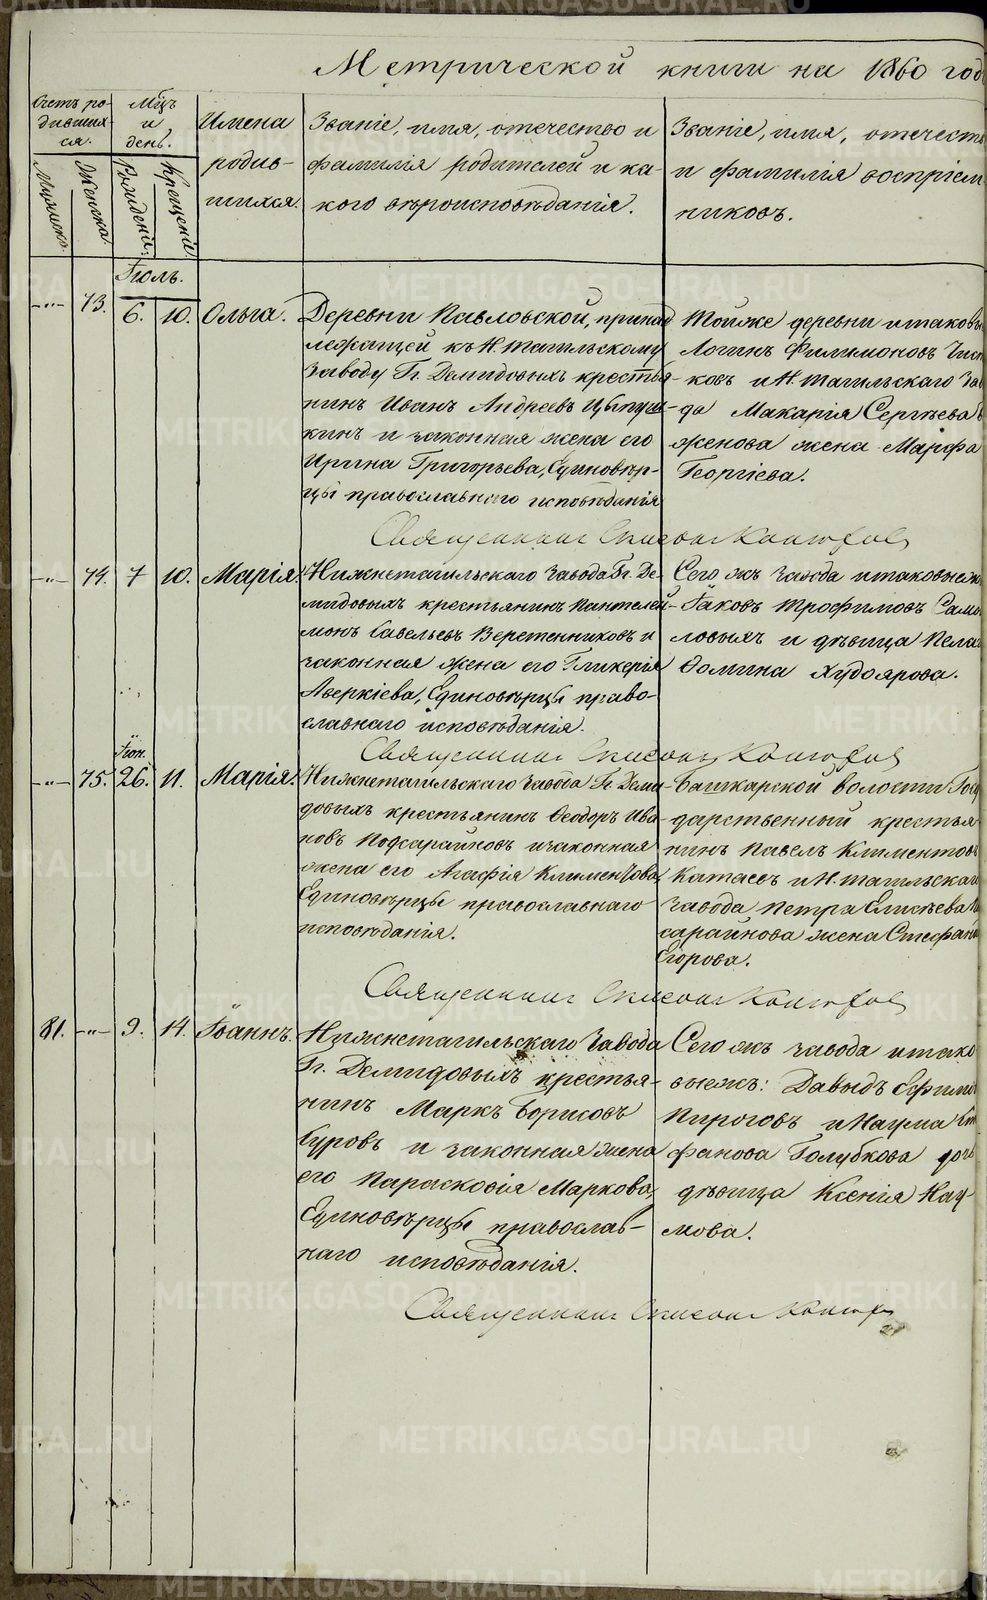 Метрической книги на 1860 год
Счетъ ро-
дивших-
ся.
Мужеска.
Женска.
Мцъ
и
день.
Рожденія.
Крещенія.
Имена
родив-
шихся.
Званіе, имя, отечество и
фамилія родителей и ка-
кого вѣроисповѣданія.
Званіе, имя, отечеств
и фамилія воспріем
никовъ.
Іюль.
-„- 73. 6. 10. Ольга.
Деревни Павловской, принад
лежащей къ Н. Тагильскому
заводу Гг. Демидовыхъ крестья-
нинъ Иванъ Андреевъ Цыпуш-
кинъ и законная жена его
Ирина Григорьева, Единовѣр-
цы православнаго исповѣданія
Тойже деревни итаков
Логинъ Филимоновъ Чист
ковъ и Н. Тагильскаго зав
да Макарія Сергѣева
женова жена Марфа
Георгіева.
Священникъ
-„- 74. 7 10. Марія.
Нижнетагильскаго завода Гг. Де-
мидовыхъ крестьянинъ Пантелей-
монъ Савельевъ Веретенниковъ и
законная жена его Гликерія
Аверкіева, Единовѣрцы право-
славнаго исповѣданія.
Сего жъ завода итаковыежъ
Іаковъ Трофимовъ Само
ловыхъ и дѣвица Пелаг
Ѳомина Худоярова.
Священникъ
-„- 75. Іюн. 26. 11. Марія.
Нижнетагильскаго завода Гг. Деми-
довыхъ крестьянинъ Ѳеодоръ Ива-
новъ Подсарайновъ изаконная
жена его Агафія Климентова,
Единовѣрцы православнаго
исповѣданія.
Башкарской волости Госу
дарственный крестья
нинъ Павелъ Климентовъ
Катаевъ и Н. Тагильскаг
завода Петра Елисѣева По
сарайнова жена Стефани
Егорова.
Священникъ
81. -„- 9. 14. Іоаннъ.
Нижнетагильскаго завода
Гг. Демидовыхъ крестья-
нинъ Маркъ Борисовъ
Суровъ и законная жена
его Парасковія Маркова,
Единовѣрцы православ-
наго исповѣданія.
Сего жъ завода итако
выежъ: Давыдъ Ефимо
Пироговъ и Наума Ст
фанова Голубкова доч
дѣвица Ксенія Нау-
мова.
Священникъ
METRIKI.GASO-URAL.RU